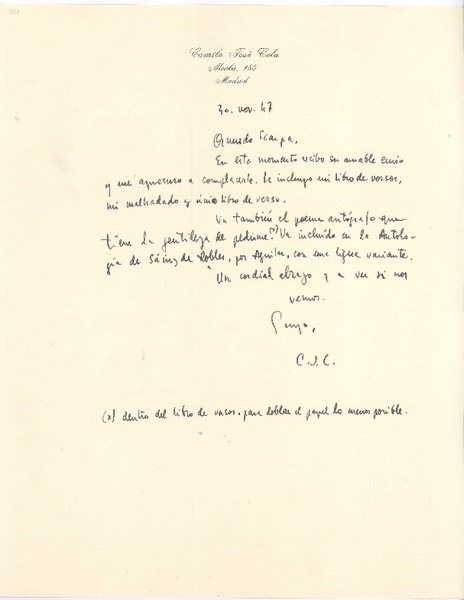 Camilo José Cela
Alcalá, 185
Madrid
30. nov. 47
Querido Scarpa,
En este momento recibo su amable envío
y me apresuro a complacerle. Le incluyo mi libro de versos,
mi malhadado y único libro de verso.
Va también el poema autógrafo que
tiene la gentileza de pedirme. (x) Va incluído en la Antolo-
gía de Sáinz de Robles, por Aguilar, con una ligera variante.
Un cordial abrazo y a ver si nos
vemos.
Suyo,
C.J.C.
(x) dentro del libro de versos, para doblar el papel lo menos posible.